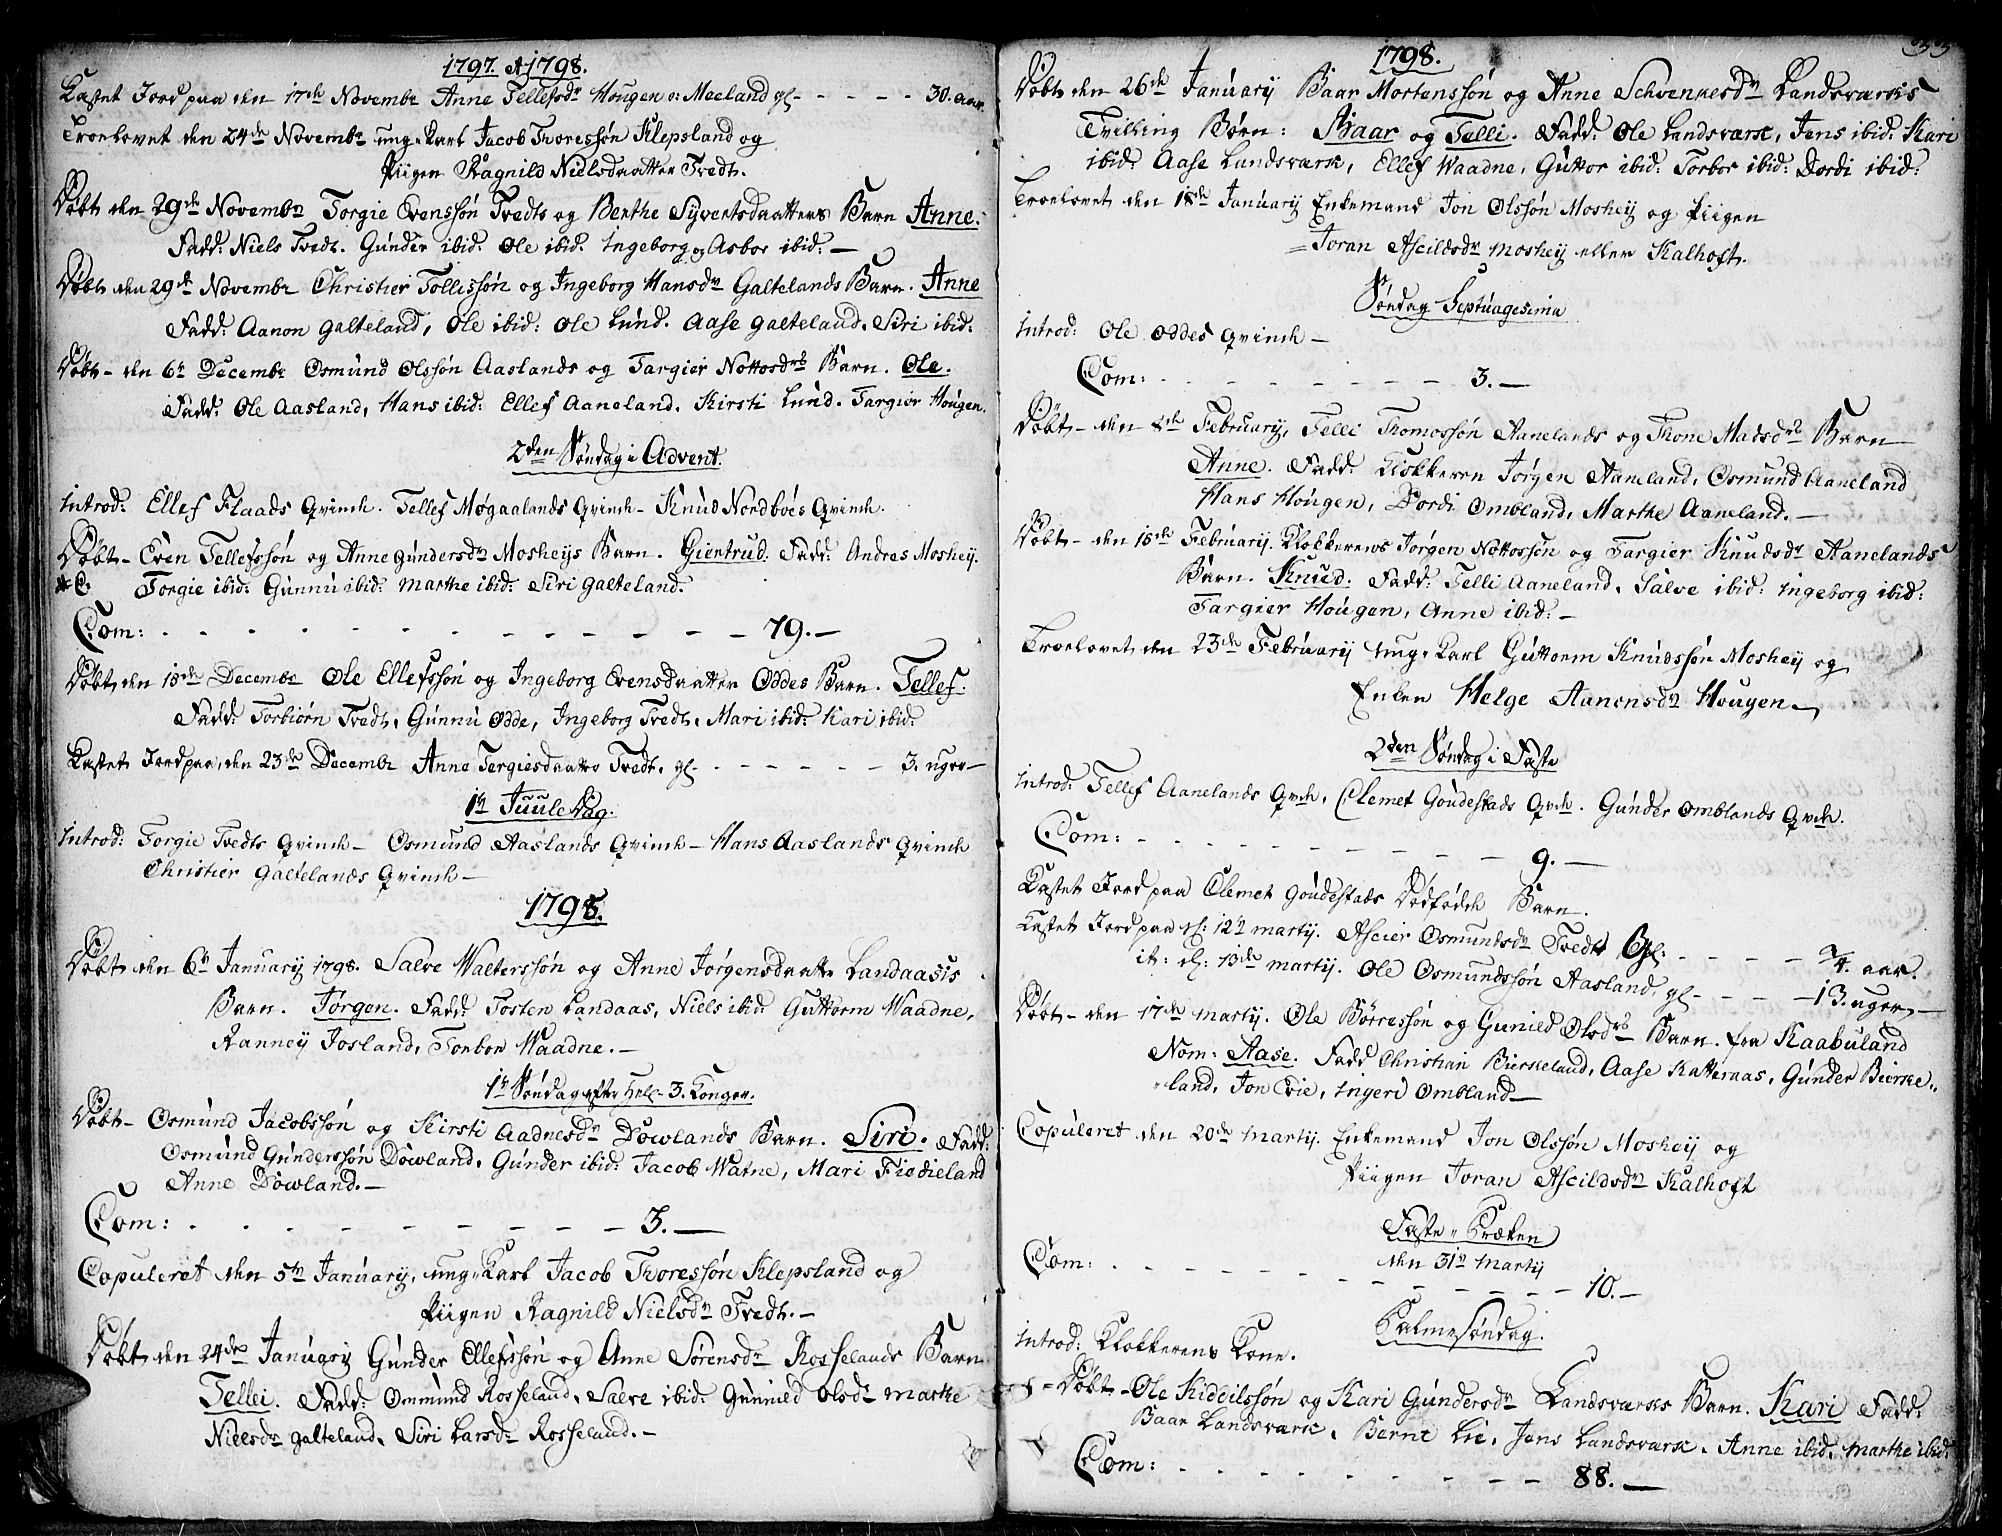 1797. & 1798.
Kastet Jord paa den 17de Novembr Anne Tellefsdr Hougen o: Meeland gl - - - - - 30. aar.
Troelovet den 24de Novembr ung-Karl Jacob Thoressøn Klepsland og
Piigen Ragnild Nielsdaatter Tvedt.
Døbt den 29de Novembr Torgie Evenssøn Tvedts og Berthe Syvertsdaatters Barn Anne.
Fadd: Niels Tvedt. Gunder ibid. Ole ibid. Ingeborg og Asbor ibid: —
Døbt den 29de Novembr Christier Tollissøn og Ingeborg Hansdr Galtelands Barn. Anne
Fadd: Aanon galteland, Ole ibid: Ole Lund. Aase galteland. Siri ibid:
Døbt - den 6te Decembr Osmund Olssøn Aaslands og Targier Nottosdrs Barn. Ole.
Fadd: Ole Aasland, Hans ibid: Ellef Aaneland. Kirsti Lund. Targier Hougen.
2den Søndag i Advent.
Introd: Ellef Flaads Qvinde. Tellef Møgaalands Qvinde - Knud Nordboes Qvinde.
Døbt - Even Tellefssøn og Anne Gundersdr Mosheys Barn. Gientrud. Fadd: Andres Moshey.
Torgie ibid: Gunnu ibid: Marthe ibid: Siri galteland.
Com: - - - - - - - - - - - - 79. —
Døbt den 18de Decembr Ole Ellefssøn og Ingeborg Evensdaatter Oddes Barn. Tellef.
Fadd: Torbiørn Tvedt, Gunnu Odde, Ingeborg Tvedt, Mari ibid: Kari ibid:
Kastet Jord paa, den 23de Decembr Anne Tergiesdaatter Tvedt. gl - - - - - - 3. uger —
1te Juule Dag.
Introd: Torgie Tvedts Qvinde - Osmund Aaslands Qvinde - Hans Aaslands Qvinde
Christier Galtelands Qvinde —
1798.
Døbt den 6te January 1798. Salve Walterssøn og Anne Jørgensdaatter Landaasis
Barn. Jørgen. Fadd: Tosten Landaas, Niels ibid: Guttorm Waadne,
Ranney Josland, Tonbor Waadne. —
1te Søndag efter Hel- 3. Konger.
Døbt - Osmund Jacobssøn og Kirsti Aadnesdr Dowlands Barn. Siri. Fadd:
Osmund Gunderssøn Dowland. Gunder ibid: Jacob Watne, Mari Fiodieland
Anne Dowland. —
Com: - - - - - - - - - - 3. —
Copuleret den 5te January, ung-Karl Jacob Thoressøn Klepsland og
Piigen Ragnild Nielsdr Tvedt. —
Døbt den 24de January Gunder Ellefssøn og Anne Sørensdr Rosselands Barn
Tellei. Fadd: Ommund Rosseland, Salve ibid: Gunnild Olsdr Marthe
Nielsdr galteland, Siri Larsdr Rosseland. —
1798.
Døbt den 26de January Baar Mortenssøn og Anne Schvenkesdr Landsværks
Tvilling Børn: Baar og Telli. Fadd: Ole Landsværk, Jens ibid: Kari
ibid: Aase Landsværk, Ellef Waadne, Guttor ibid: Torbor ibid: Dordi ibid:
Troelovet den 18de January Enkemand Jon Olssøn Moshey og Piigen
Joran Ascildsdr Moshey eller Kalhoft.
Søndag Septuagesima
Introd: Ole Oddes Qvinde —
Com: - - - - - - - - 3. —
Døbt - den 8de February, Telli Thomossøn Aanelands og Thone Madsdrs Barn
Anne. Fadd: Klokkeren Jørgen Aaneland, Osmund Aaneland
Hans Hougen, Dordi Ombland, Marthe Aaneland. —
Døbt - den 18de February. Klokkerens Jørgen Nottossøn og Targier Knudsdr Aanelands
Barn. Knud. Fadd: Telli Aaneland, Salve ibid: Ingeborg ibid:
Targier Hougen, Anne ibid: —
Troelovet den 23de February ung-Karl Guttorm Knudssøn Moshey og
Enken Helge Aanonsdr Hougen —
2den Søndag i Faste
Introd: Tellef Aanelands Qvde, Clemet Goudestads Qvde. Gunder Omblands Qvde.
Com: - - - - - - - - - - 9. —
Kastet Jord paa Clemet Goudestads Dødfødde Barn.
Kastet Jord paa d: 12te Martij. Ascier Osmundsdr Tvedt Gl: - - - - 3/4. aar.
it: d: 13de Martij. Ole Osmundssøn Aasland, gl - - - - 13. uger —
Døbt - den 17de Martij. Ole Børressøn og Gunild Olsdrs Barn. fra Kaabuland
Nom: Aase. Fadd Christian Bierkeland, Aase Katteraas, Gunder Bierke-
land, Jon Evie, Ingeri Ombland —
Copuleret den 20de Martij. Enkemand Jon Olssøn Moshey og
Piigen Joran Ascildsdr Kalhoft
Faste-Præken
den 31te Martij
Com: - - - - - - - - - - - 10. —
Palmesøndag.
Introd: Klokkerens Kone.
Døbt - Ole Kiddilssøn og Kari Gundersdr Landsværks Barn. Kari Fadd:
Baar Landsværk, Bernt Lie, Jens Landsværk, Anne ibid: Marthe ibid:
Com: - - - - - - - - 88. —